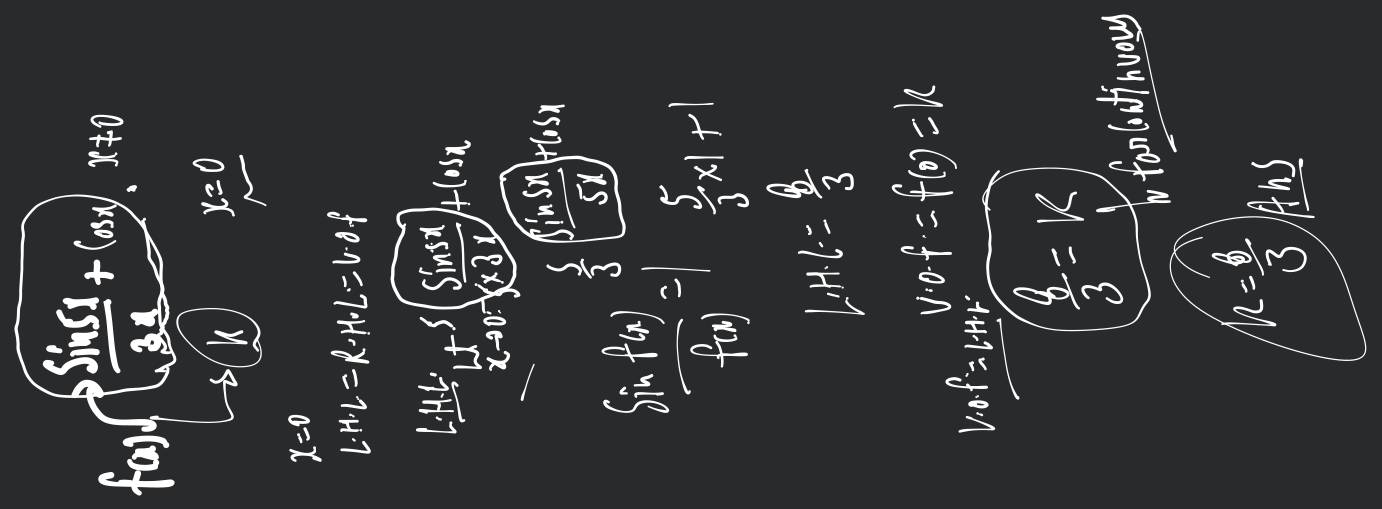 f(x) = sin5x/3x + Cosx, x≠0
K x=0
x=0
L.H.L = R.H.L = V.o.f
L.H.L. Lt x→0⁻ 5 sin5x/5×3x + Cosx
5/3 sin5x/5x + Cosx
sin f(x)/f(x) = 1 5/3 x1 + 1
L.H.L = 8/3
V.o.f. = f(0) = K
V.o.f = L.H.L
8/3 = K for continuous
K = 8/3 Ans